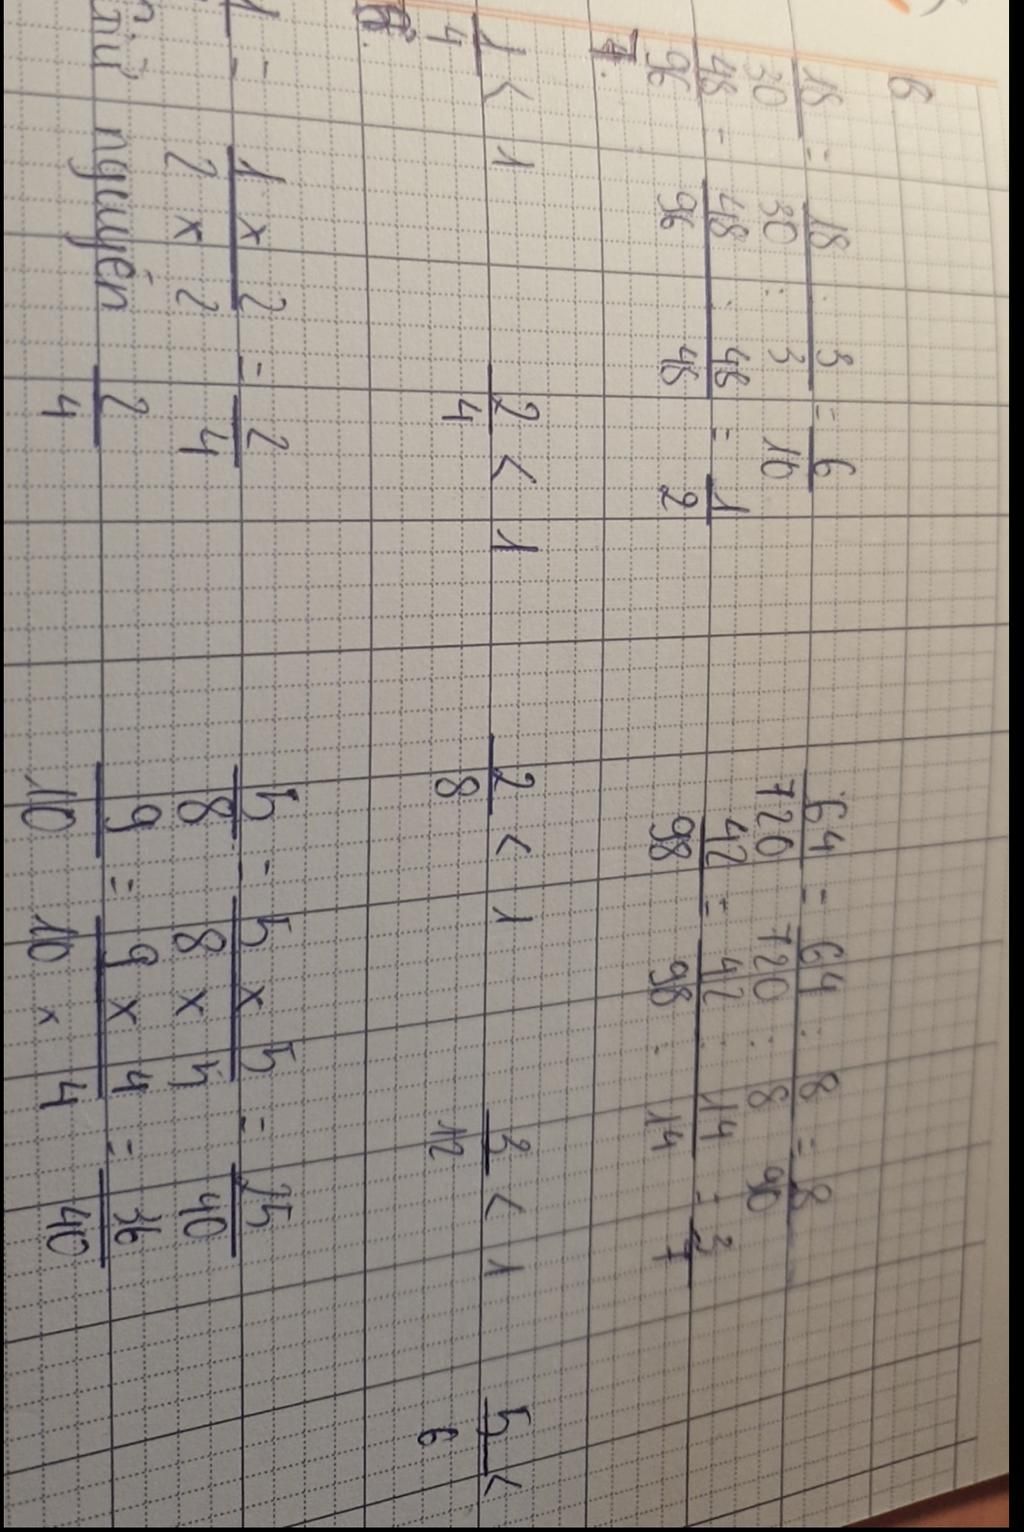 6.
18/30 = 18 : 3 / 30 : 3 = 6/10 64/720 = 64 : 8 / 720 : 8 = 8/90
48/96 = 48 : 48 / 96 : 48 = 1/2 42/98 = 42 : 14 / 98 : 14 = 3/7
7.
1/4 < 1 2/4 < 1 2/8 < 1 3/12 < 1 5/6 <
8.
= 1 x 2 / 2 x 2 = 2/4 5/8 = 5 x 5 / 8 x 5 = 25/40
nguyên 2/4 9/10 = 9 x 4 / 10 x 4 = 36/40